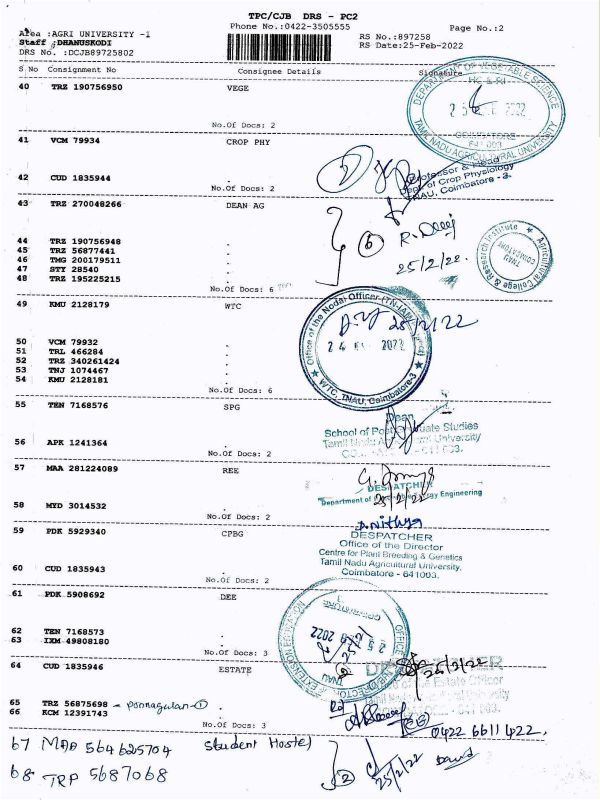 TPC/CJB DRS - PC2
Area :AGRI UNIVERSITY -1
Phone No.:0422-3505555
Page No.:2
Staff :DHANUSKODI
RS No.:897258
DRS No. :DCJB89725802
RS Date:25-Feb-2022
S No Consignment No Consignee Details Signature
40 TRZ 190756950 VEGE
No.Of Docs: 2
DEPARTMENT OF VEGETABLE SCIENCE
HC & RI
2022
COIMBATORE
641 003
TAMIL NADU AGRICULTURAL UNIVERSITY
41 VCM 79934 CROP PHY
42 CUD 1835944 .
No.Of Docs: 2
Professor & Head
Dept. of Crop Physiology
TNAU, Coimbatore - 3.
43 TRZ 270048266 DEAN AG
44 TRZ 190756948 .
45 TRZ 56877441 .
46 TMG 200179511 .
47 STY 28540 .
48 TRZ 195225215 .
No.Of Docs: 6
6
25/2/22.
Agricultural College & Research Institute
TNAU
COIMBATORE
49 KMU 2128179 WTC
50 VCM 79932 .
51 TRL 466284 .
52 TRZ 340261424 .
53 TNJ 1074467 .
54 KMU 2128181 .
No.Of Docs: 6
Office of the Nodal Officer
25/2/22
2022
WTC, TNAU, Coimbatore-3
55 TEN 7168576 SPG
56 APK 1241364 .
No.Of Docs: 2
Dean
School of Post Graduate Studies
Tamil Nadu University
57 MAA 281224089 REE
58 MYD 3014532 .
No.Of Docs: 2
DESPATCHER
Department of Energy Engineering
25/2/22
59 PDK 5929340 CPBG
60 CUD 1835943 .
No.Of Docs: 2
D.Nithya
DESPATCHER
Office of the Director
Centre for Plant Breeding & Genetics
Tamil Nadu Agricultural University.
Coimbatore - 641003.
61 PDK 5908692 DEE
62 TEN 7168573 .
63 IXM 49808180 .
No.Of Docs: 3
EXTENSION EDUCATION
COIMBATORE
2022
TNAU
64 CUD 1835946 ESTATE
65 TRZ 56875698 - ponnagulan-1
66 KCM 12391743 .
No.Of Docs: 3
DESPATCHER
Estate Officer
University
25/2/22
0422 6611 422.
67 MAA 564625704 Student Hostel
68 TRP 5687068
2
25/2/22
David